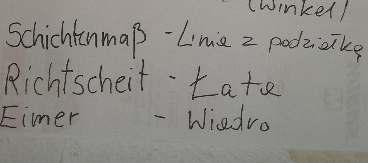 (Winkel)
Schichtenmaß - Linia z podziałką
Richtscheit - Łata
Eimer - Wiadro